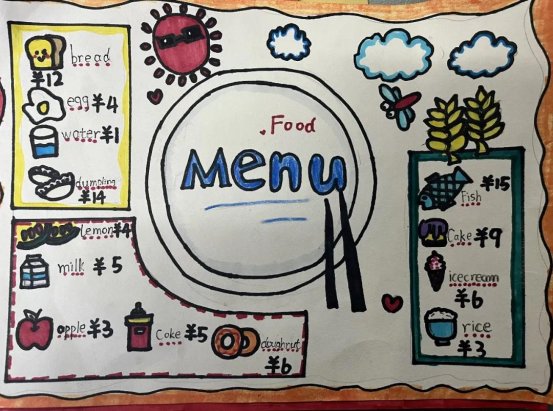 bread
¥12
egg ¥4
water ¥1
dumpling
¥14
Food
Menu
lemon ¥4
milk ¥5
apple ¥3
Coke ¥5
doughnut
¥6
¥15
Fish
Cake ¥9
icecream
¥6
rice
¥3